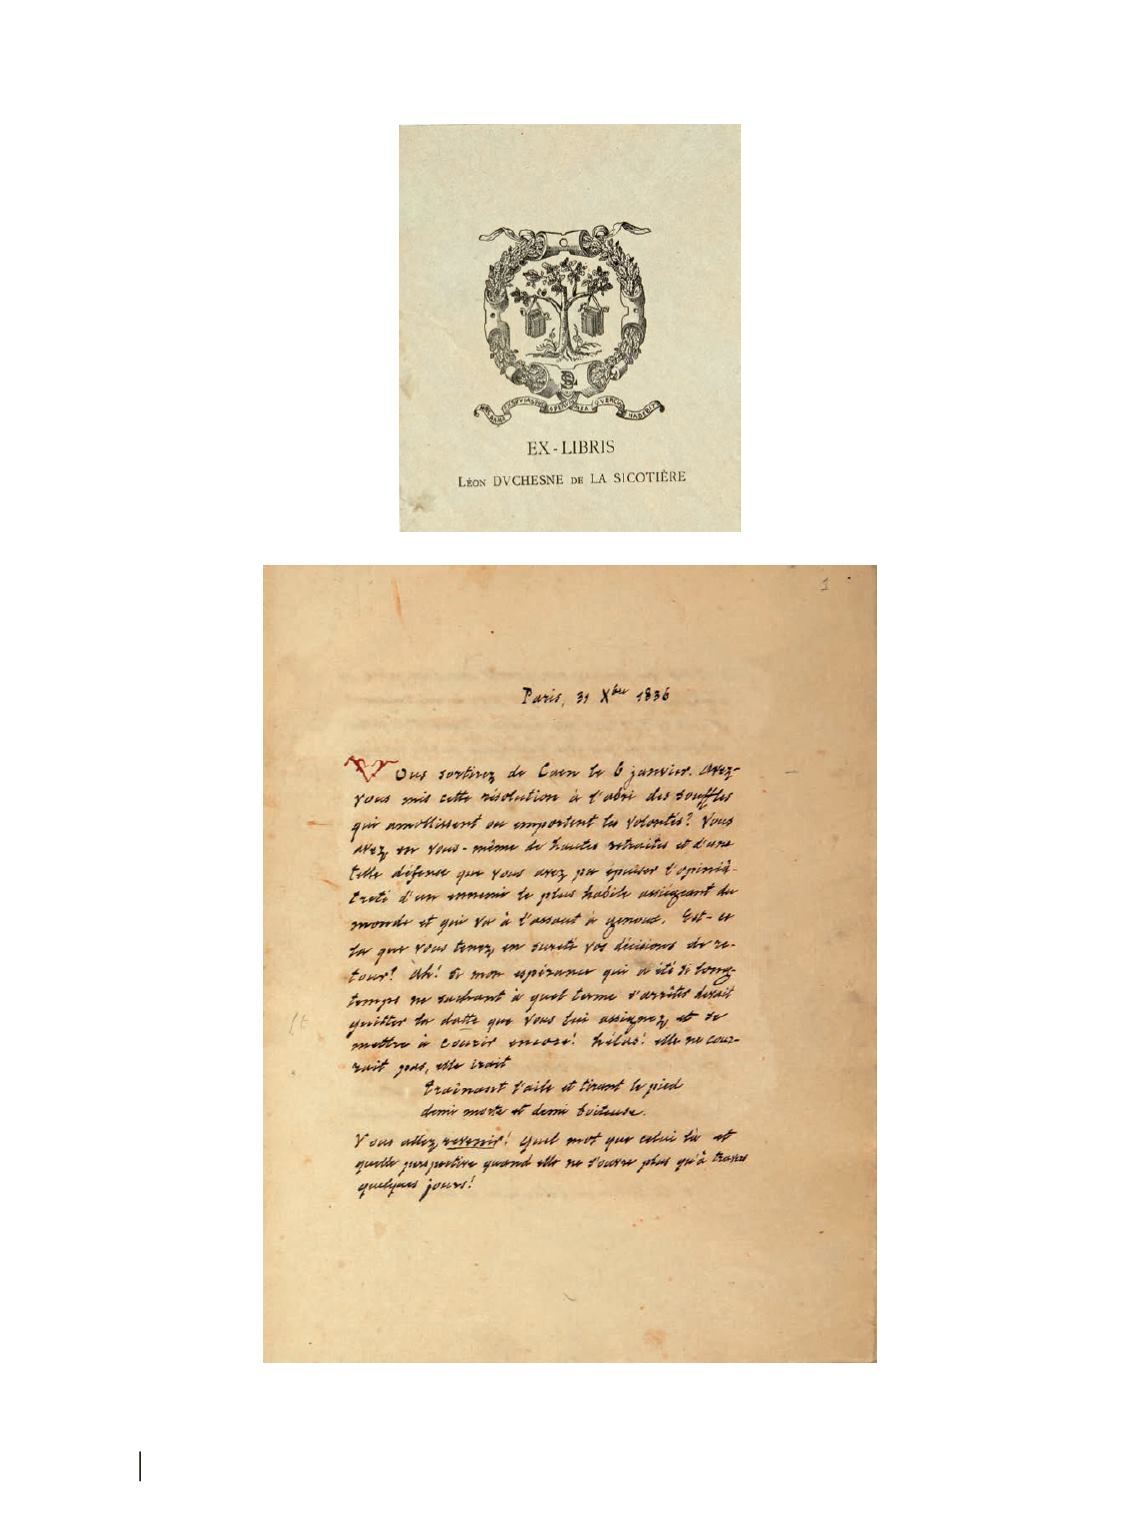 EX-LIBRIS
LÉON DVCHESNE DE LA SICOTIÈRE
1
Paris, 31 Xbre 1836
Vous sortirez de Caen le 6 janvier. Avez-
vous mis cette résolution à l'abri des souffles
qui amollissent ou emportent les volontés? Vous
avez en vous-même de hautes retraites et d'une
telle défense que vous avez pu épuiser l'opiniâ-
treté d'un ennemi le plus habile assiégeant du
monde et qui va à l'assaut à genoux. Est-ce
là que vous tenez en sureté vos décisions de re-
tour? Ah! si mon espérance qui a été si long-
temps ne sachant à quel terme s'arrêter devait
quitter la datte que vous lui assignez et se
mettre à courir encore! hélas! elle ne cour-
rait pas, elle irait
Traînant l'aile et tirant le pied
demi morte et demi boiteuse.
Vous allez revenir! Quel mot que celui là et
quelle perspective quand elle ne s'ouvre plus qu'à travers
quelques jours!